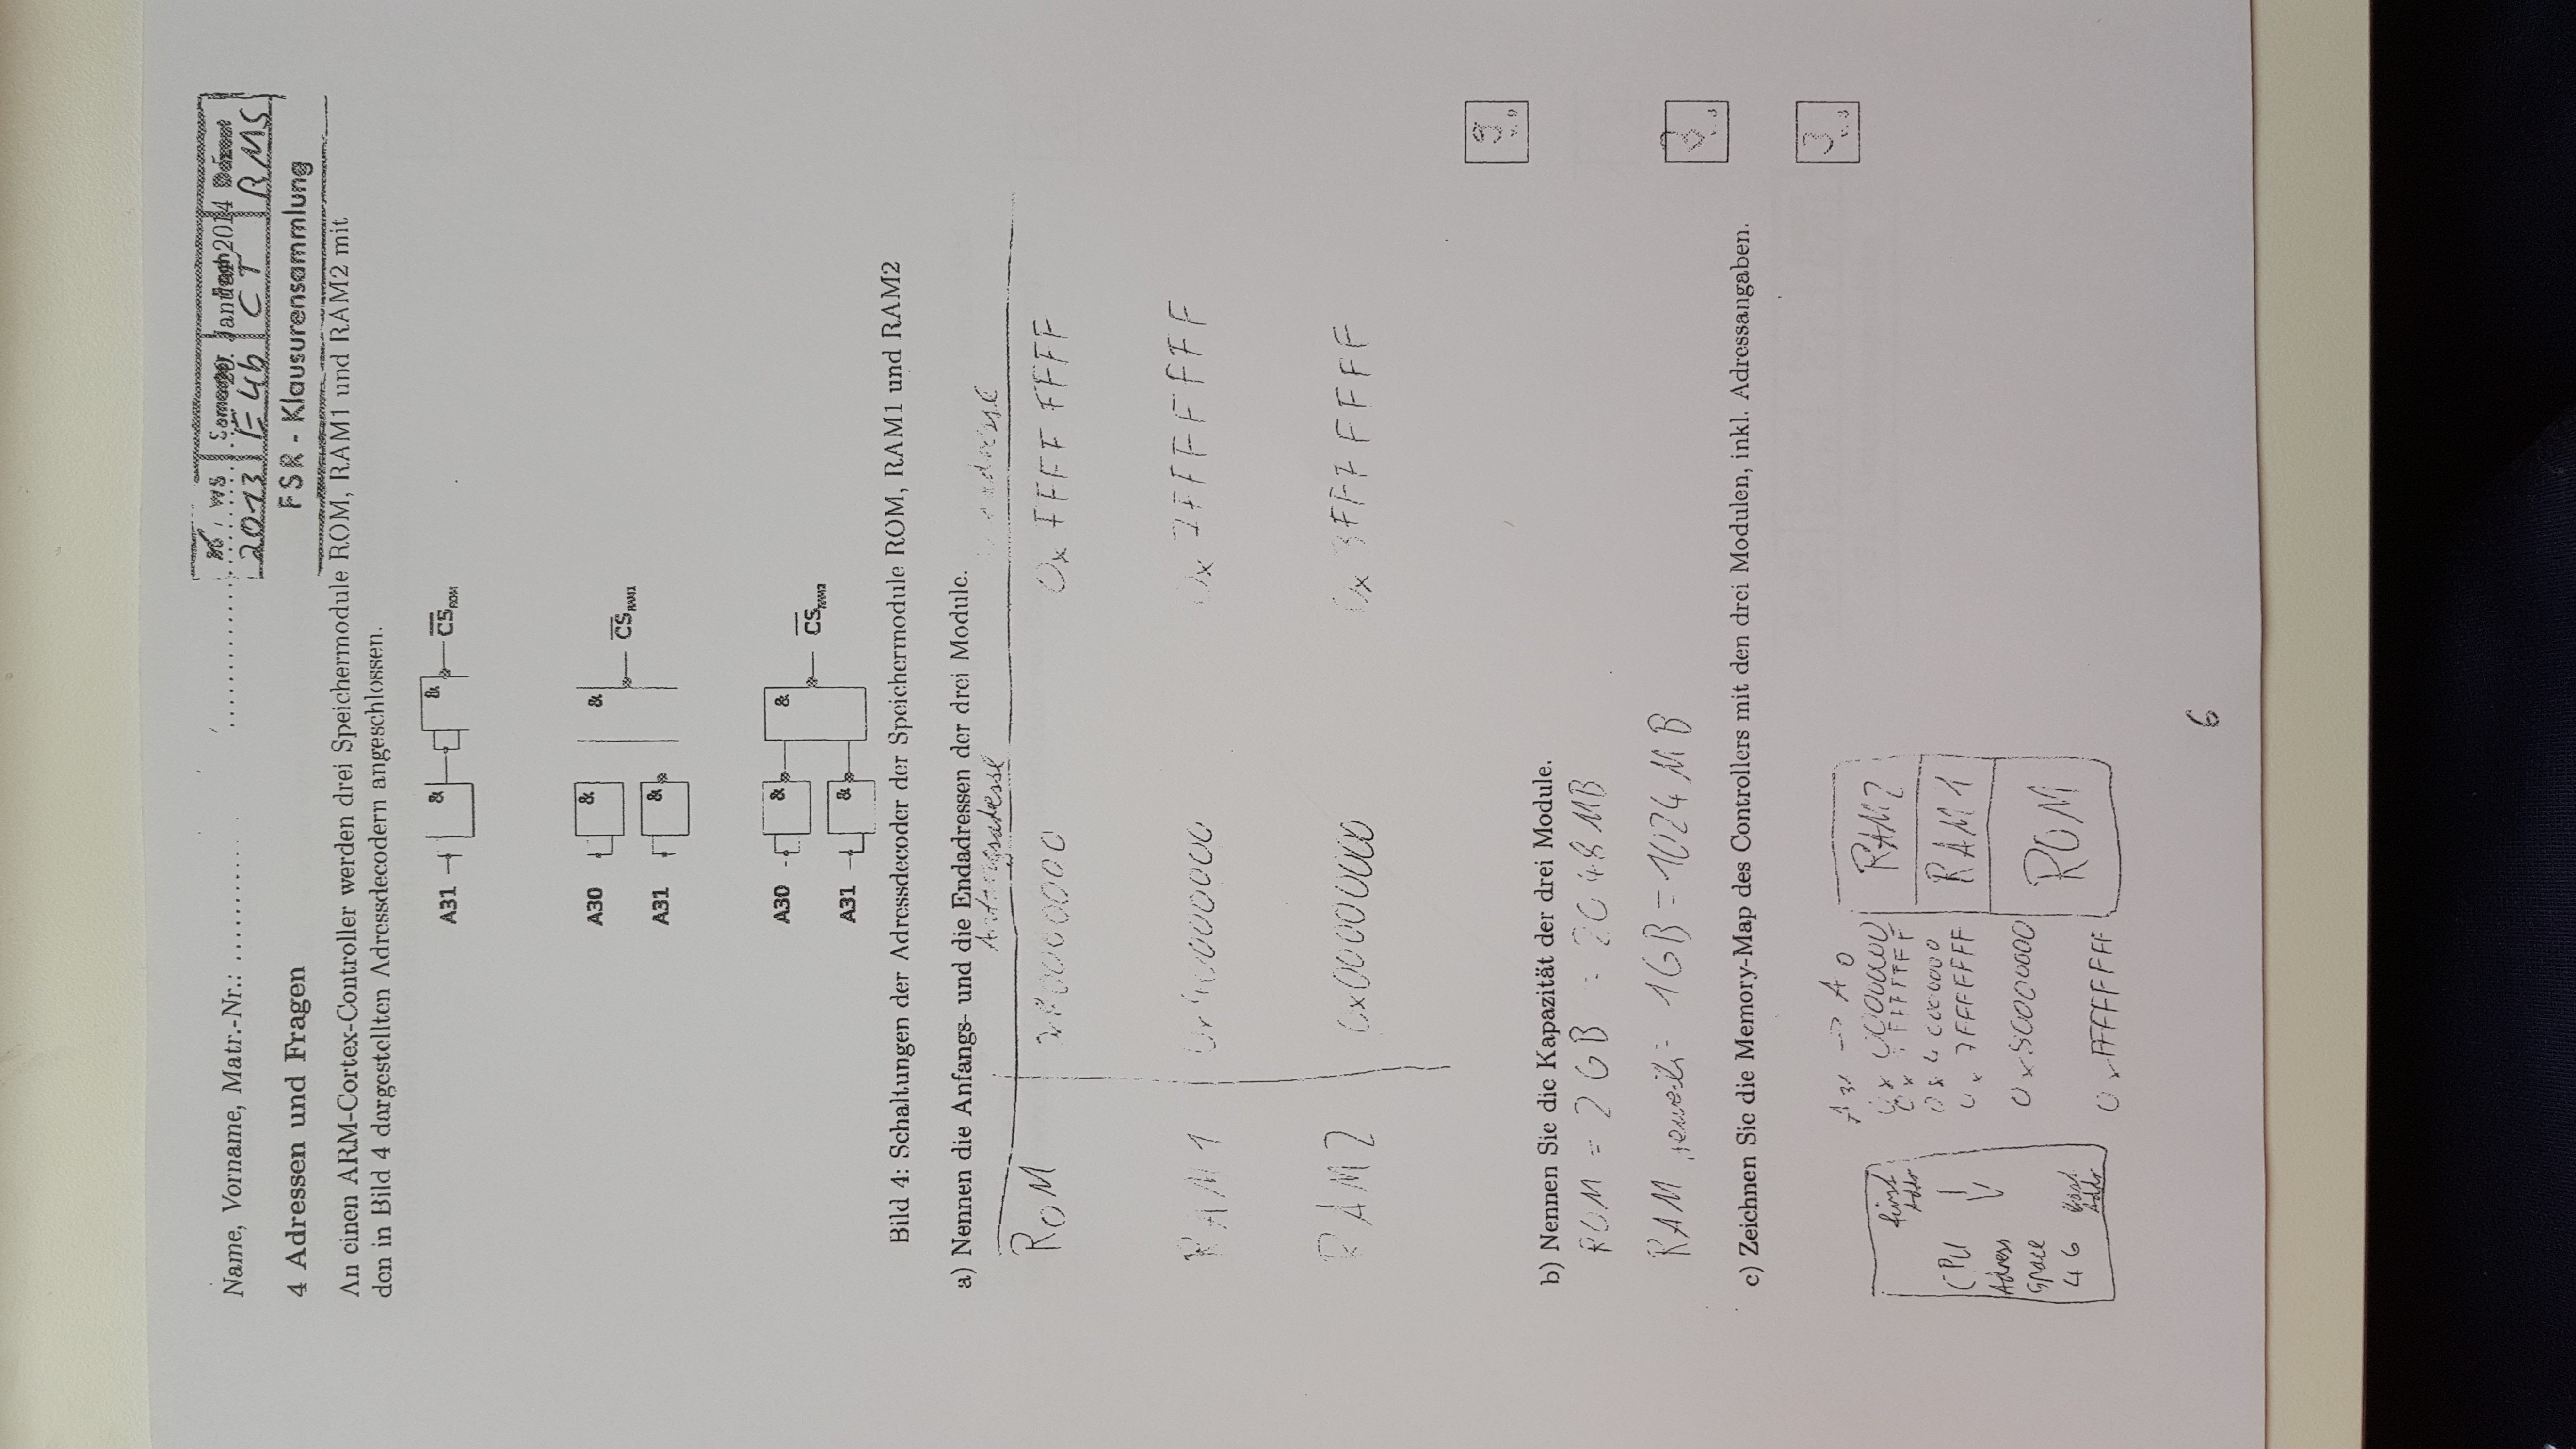 Name, Vorname, Matr.-Nr.: ............ WS Semester 20. Januar 2014 Dozent
2013 E4b CT RMS
FSR - Klausurensammlung
4 Adressen und Fragen
An einen ARM-Cortex-Controller werden drei Speichermodule ROM, RAM1 und RAM2 mit
den in Bild 4 dargestellten Adressdecodern angeschlossen.
A31 & & CS ROM
A30 & &
CS RAM1
A31 &
A30 & &
CS RAM2
A31 &
Bild 4: Schaltungen der Adressdecoder der Speichermodule ROM, RAM1 und RAM2
a) Nennen die Anfangs- und die Endadressen der drei Module.
Anfangsadresse
ROM 0x FFFF FFFF
RAM1 0x40000000 0x 7FFF FFFF
RAM2 0x00000000 0x 3FFF FFFF
9
v. 9
b) Nennen Sie die Kapazität der drei Module.
ROM = 2 GB = 2048 MB
RAM jeweils = 1GB = 1024 MB
3
v. 3
c) Zeichnen Sie die Memory-Map des Controllers mit den drei Modulen, inkl. Adressangaben.
3
v. 3
A31 -> A0
RAM2
first
Addr
0x 40000000
CPU 0x 7FFFFFFF RAM1
Adress
Space 0x80000000
4G Last ROM
Addr 0xFFFFFFFF
6